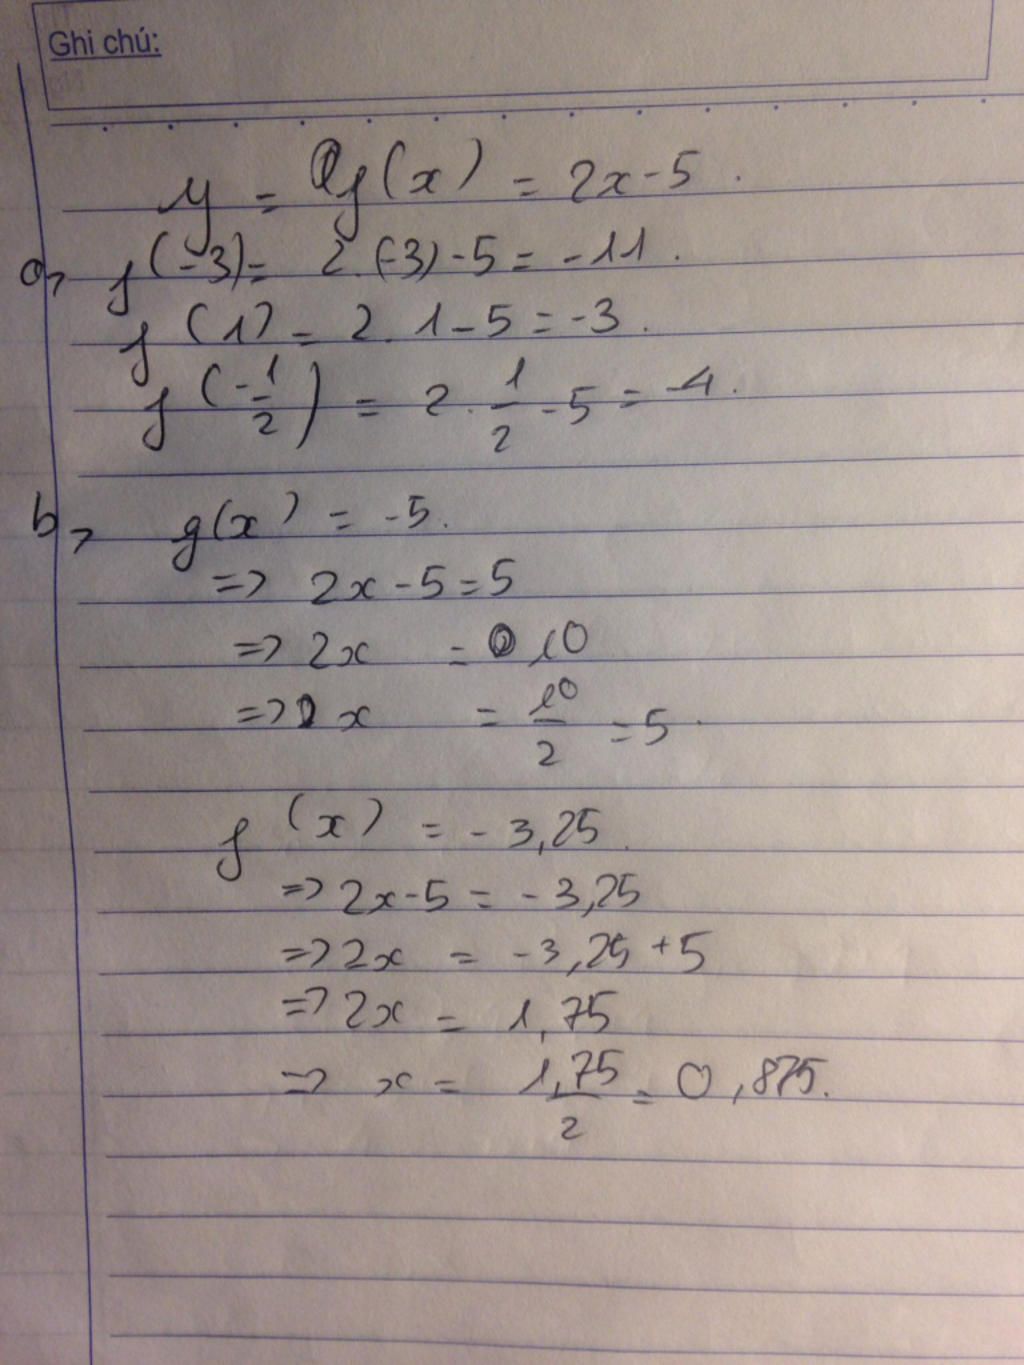 Ghi chú:
y = f(x) = 2x - 5.
a, f(-3) = 2.(-3) - 5 = -11.
f(1) = 2.1 - 5 = -3.
f(-1/2) = 2.1/2 - 5 = -4.
b, g(x) = -5.
=> 2x - 5 = 5
=> 2x = 10
=> x = 10/2 = 5.
f(x) = -3,25.
=> 2x - 5 = -3,25
=> 2x = -3,25 + 5
=> 2x = 1,75
=> x = 1,75/2 = 0,875.